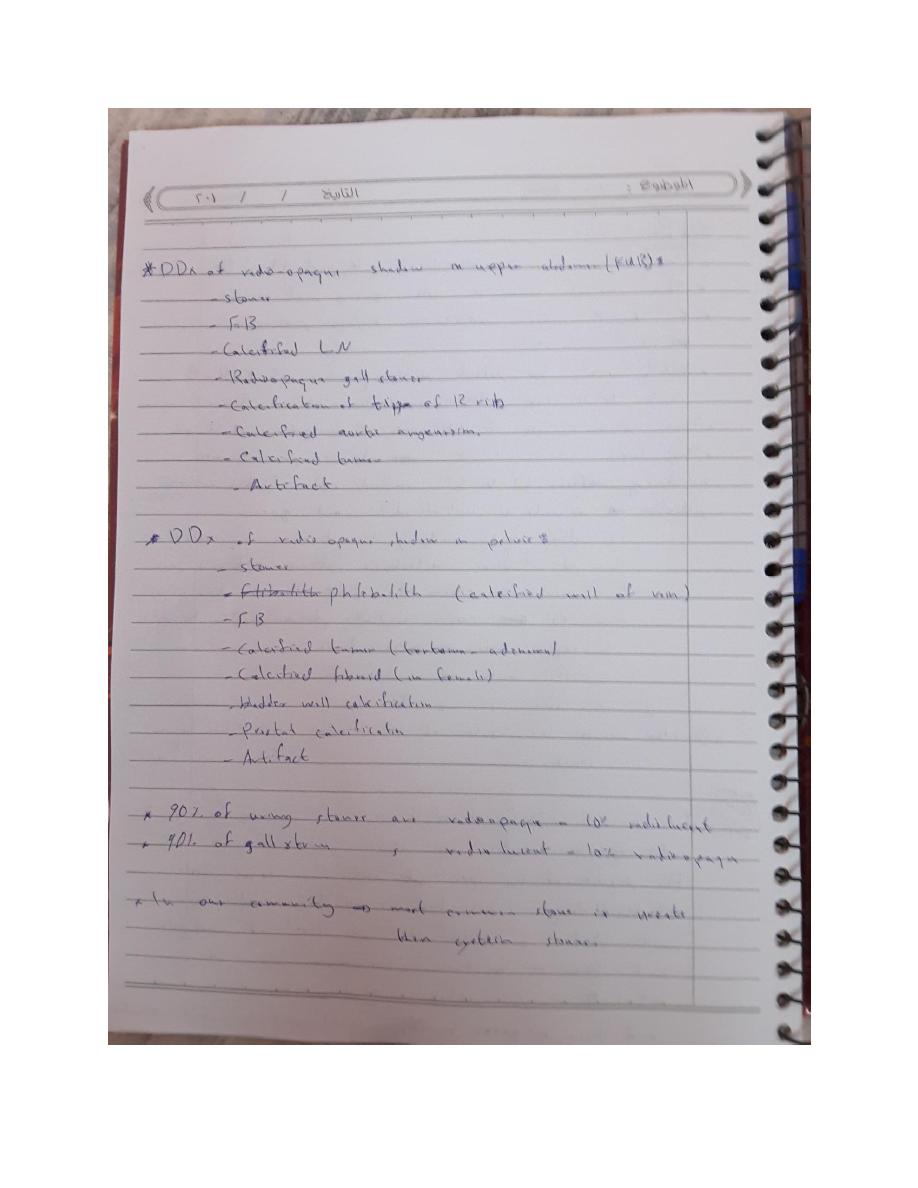 الموضوع : التاريخ / / ٢٠١
* DDx of radio-opaque shadow in upper abdomen (KUB):
- stones
- FB
- Calcified LN
- Radioopaque gall stones
- Calcification of tips of 12 rib
- Calcified aortic
- Calcified tumor
- Artifact
* DDx of radio opaque shadow in pelvis:
- stones
- phlebolith (calcified wall of vein)
- FB
- Calcified tumor
- Calcified fibroid (in female)
- bladder wall calcification
- calcification
- Artifact
* 90% of urinary stones are radioopaque - 10% radiolucent
* 90% of gall stones radiolucent - 10% radioopaque
* In our community ⇒ most common stone is urate
then cystein stones.